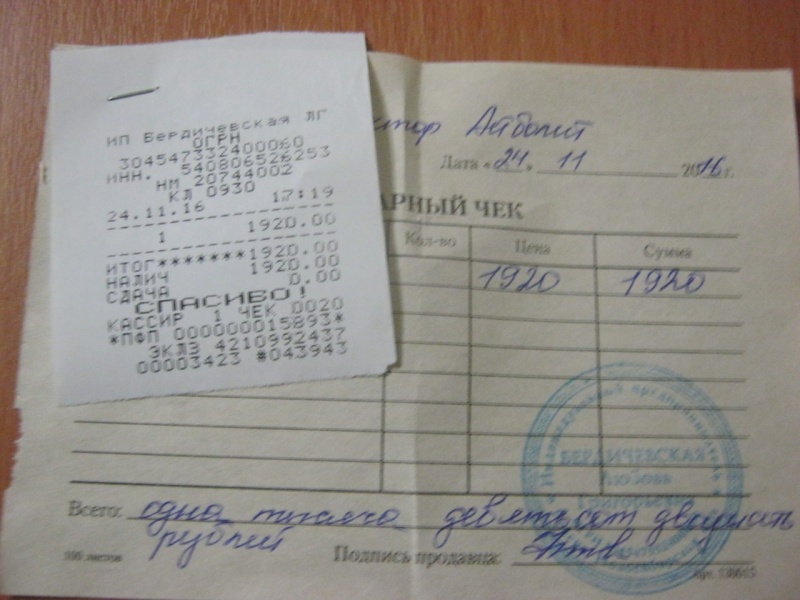 ИП Бердичевская ЛГ
ОГРН
304547332400060
ИНН. 540806526253
НМ 20744002
КЛ 0930
24.11.16 17:19
1 1920.00
ИТОГ*******1920.00
НАЛИЧ 1920.00
СДАЧА 0.00
СПАСИБО!
КАССИР 1 ЧЕК 0020
*ПФП 000000015893*
ЭКЛЗ 4210992437
00003423 #043943
Айболит
Дата «24» 11 2016г.
АРНЫЙ ЧЕК
Кол-во Цена Сумма
1920 1920
Всего: одна тысяча девятьсот двадцать
рублей
100 листов Подпись продавца:
Индивидуальный предприниматель
БЕРДИЧЕВСКАЯ
Любовь
Григорьевна